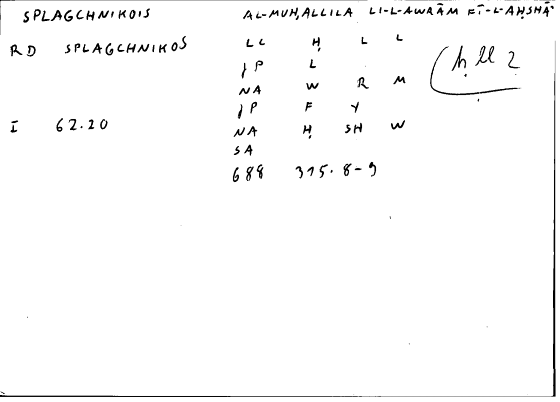 SPLAGCHNIKOIS AL-MUḤALLILA LI-L-AWRĀM FĪ-L-AḤSHĀʾ
RD SPLAGCHNIKOS LL Ḥ L L
JP L
NA W R M
JP F Y
I 62.20 NA Ḥ SH W
SA
688 315.8-9
ḥll 2